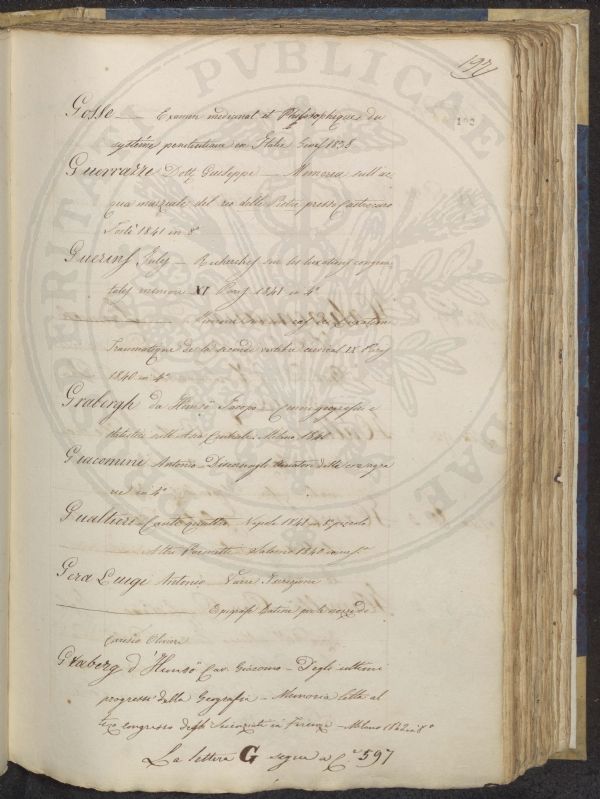 197
192
Gosse — Examen medicinal et Philosophique du
système penitentiaire en Italie Genf 1838
Guerrazzi Dott. Giuseppe — Memoria sull'ac
qua marziale del rio delle Pietre presso Castrocaro
Forlì 1841 in 8°
Guerins Jules — Recherches sur les luxations congeni
tales memoire XI Paris 1841 in 4°
Traumatique de la seconde vertebre cervical IX Paris
1840 in 4°
Grabergh da Hemsö Jacopo — Cenni geografici e
statistici sull'Asia Centrale. Milano 1840
Giacomini Antonio —
in 4°
Gualtieri — Canto Napoli 1841 in piccolo
Altre Salerno 1840
Gera Luigi Antonio Varie Iscrizioni
Epigrafi Latine per le nozze di
Graberg d'Hemsö Cav. Giacomo — Degli ultimi
progressi della Geografia — Memoria letta al
terzo congresso degli Scienziati in Firenze — Milano 1842 in 8°
La lettera G segue a C. 597